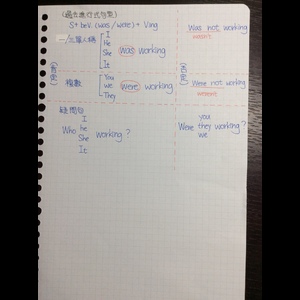 (過去進行式句型)
S + beV. (was / were) + Ving
Was not working
wasn't
一/三單人稱
I
He
She
It
was working
(肯定)
(否定)
複數
You
we
They
were working
Were not working
weren't
疑問句
Who
I
he
She
It
working ?
Were
you
they
we
working ?